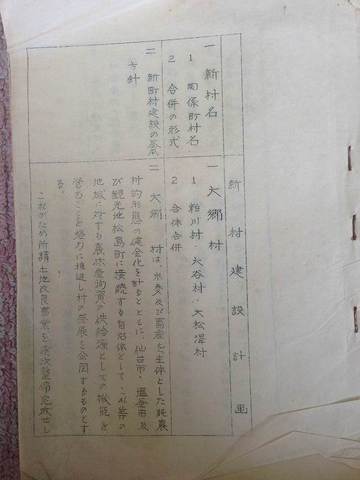 新村建設計画
一 新村名
一 大郷村
1 関係町村名
1 粕川村・大谷村・大松沢村
2 合併の形式
2 合体合併
二 新町村建設の基本
方針
二 大郷村は、水麦及び畜産を主体とした純農
村的形態の健全化を計るとともに、仙台市、塩釜市及
び観光地松島町に接続する自治体として、
地域に対する農水産物資の供給源としての機能を
営むことを強力に推進し村の発展を企図するものとす
る。
これがため所謂土地改良事業を逐次整備完成せし